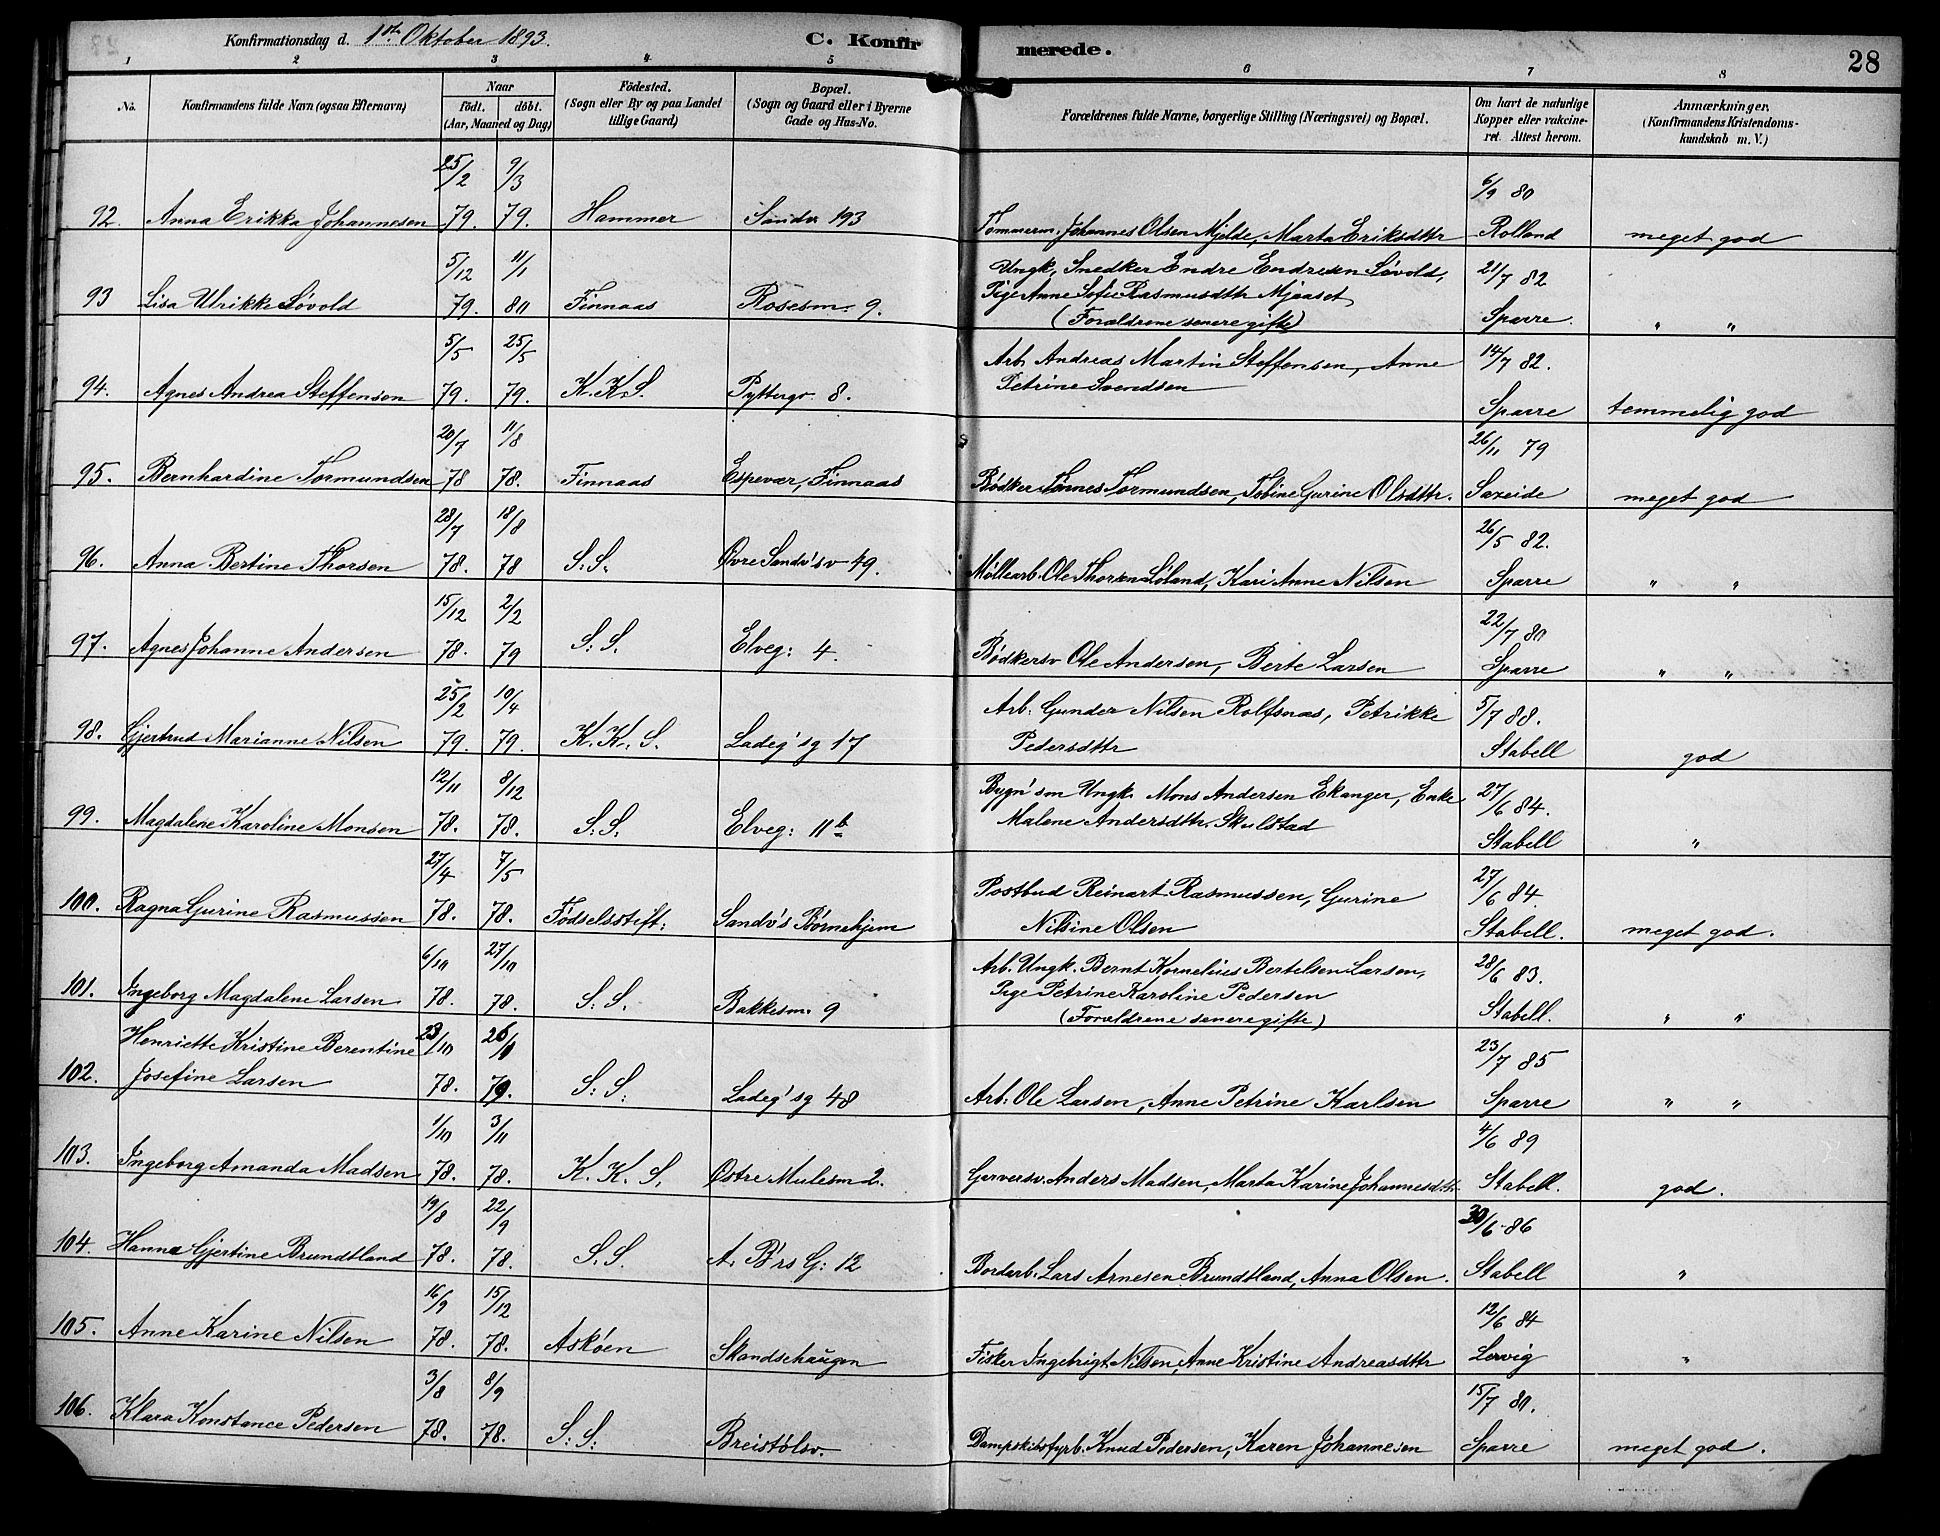 Konfirmationsdag d. 1ste Oktober 1893.
C. Konfirmerede.
28
1 2 3 4 5 6 7 8
No.
Konfirmandens fulde Navn (ogsaa Efternavn)
Naar
födt. döbt.
(Aar, Maaned og Dag)
Födested.
(Sogn eller By og paa Landet
tillige Gaard)
Bopæl.
(Sogn og Gaard eller i Byerne
Gade og Hus-No.
Forældrenes fulde Navne, borgerlige Stilling (Næringsvei) og Bopæl.
Om havt de naturlige
Kopper eller vakcine-
ret. Attest herom.
Anmærkninger.
(Konfirmandens Kristendoms-
kundskab m. V.)
25/2 9/3 6/9 80
92. Anna Erikka Johannesen 79. 79. Hammer Sandv 193 Tömmerm. Johannes Olsen Mjelde, Marta Eriksdttr Rolland meget god
5/12 11/1 Ungk. Snedker Endre Endresen Lövold, 21/7 82
93 Lisa Ulrikke Lövold 79. 80 Finnaas Rosesm. 9. Pige Anne Sofie Rasmusdttr Mjaaset
(Forældrene senere gifte) Sparre. " "
5/5 25/5 Arb. Andreas Martin Steffensen, Anne 14/7 82.
94. Agnes Andrea Steffensen 79. 79. K.K.S. Pyttergr 8. Petrine Svendsen Sparre temmelig god
20/7 11/8 26/11 79
95. Bernhardine Tormundsen 78 78. Finnaas Espevær, Finnaas Bödker Tönnes Tormundsen, Tobine Gurine Olsdttr. Saxeide meget god
28/7 18/8 26/5 82.
96. Anna Bertine Thorsen 78. 78 S.S. Övre Sandv'sv 49. Möllearb. Ole Thorsen Löland, Kari Anne Nilsen Sparre " "
15/12 2/2 22/7 80
97. Agnes Johanne Andersen 78. 79 S.S. Elveg: 4. Bödkersv. Ole Andersen, Berte Larsen Sparre " "
25/2 10/4 Arb. Gunder Nilsen Rolfsnæs, Petrikke 5/7 88.
98. Gjertrud Marianne Nilsen 79. 79. K.K.S. Ladeg'sg 17 Pedersdttr Stabell god
12/11 8/12 Bygn'sm Ungk. Mons Andersen Ekanger, Enke 27/6 84.
99. Magdalene Karoline Monsen 78. 78. S.S. Elveg: 11b Malene Andersdttr. Skulstad Stabell "
27/4 7/5 Postbud Reinart Rasmussen, Gurine 27/6 84
100. Ragna Gurine Rasmussen 78. 78. Födselsstift: Sandv's Börnehjem Nilsine Olsen Stabell. meget god.
6/10 27/10 Arb. Ungk. Bernt Kornelius Bertelsen Larsen, 28/6 83.
101. Ingeborg Magdalene Larsen 78. 78. S.S. Bakkesm. 9 Pige Petrine Karoline Pedersen
(Forældrene senere gifte) Stabell. " "
Henriette Kristine Berentine 23/10 23/7 85
102. Josefine Larsen 78. 79. S.S. Ladeg'sg 48 Arb. Ole Larsen, Anne Petrine Karlsen Sparre " "
1/10 3/11 4/6 89
103. Ingeborg Amanda Madsen 78. 78. K.K.S. Östre Mulesm 2. Garversv. Anders Madsen, Marta Karine Johannesdttr Stabell. god.
19/8 22/9 30/6 86
104. Hanna Gjertine Brundtland 78. 78. S.S. A. B'rs G: 12 Bordarb. Lars Arnesen Brundtland, Anna Olsen. Stabell "
16/9 15/12 12/6 84
105. Anne Karine Nilsen 78. 78. Asköen Skandsehaugen Fisker Ingebrigt Nilsen, Anne Kristine Andreasdttr Lervig "
3/8 8/9 15/7 80.
106. Klara Konstance Pedersen 78. 78. S.S. Breistölsv. Dampskibsfyrb. Knud Pedersen, Karen Johannesen Sparre meget god.